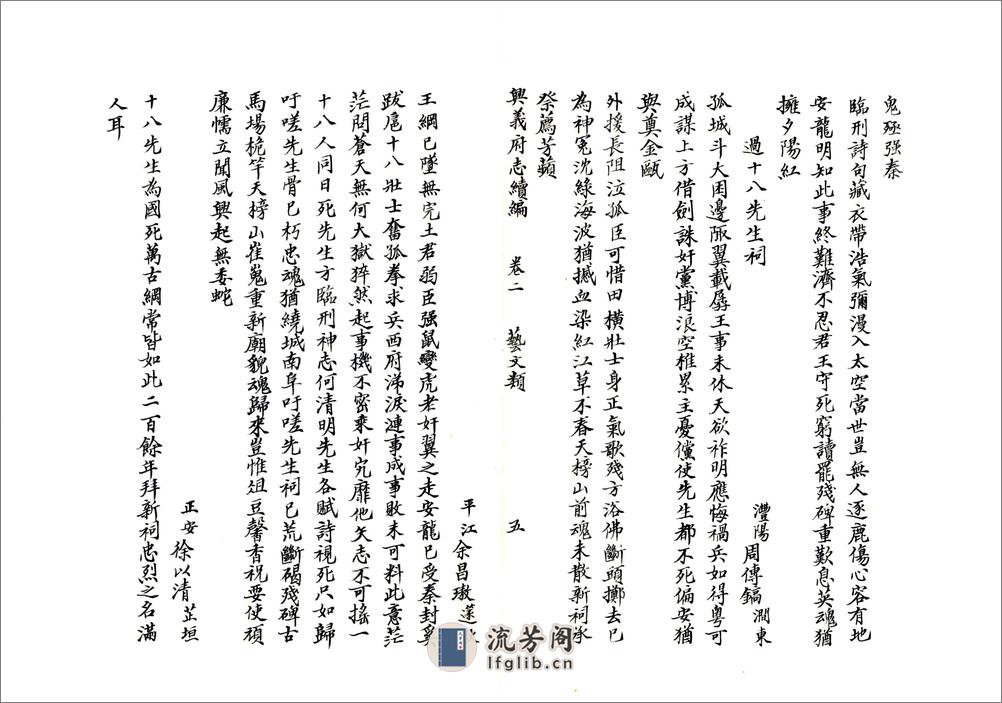 鬼殛强秦
臨刑詩句藏衣帶浩氣彌漫入太空當世豈無人逐鹿傷心容有地
安龍明知此事終難濟不忍君王守死窮讀罷殘碑重歎息英魂猶
擁夕陽紅
過十八先生祠
澧陽周傳鎬澗東
孤城斗大困邊陬翼載孱王事未休天欲祚明應悔禍兵如得粤可
成謀上方借劍誅奸黨博浪空椎累主憂儻使先生都不死偏安猶
與奠金甌
外援長阻泣孤臣可惜田橫壯士身正氣歌殘方浴佛斷頭擲去已
為神冤沈綠海波猶撼血染紅江草不春天榜山前魂未散新祠承
祭薦芳蘋
興義府志續編 卷二 藝文類 五
平江余昌璈蓬
王綱已墜無完土君弱臣强鼠變虎老奸翼之走安龍已受秦封爭
跋扈十八壯士奮孤拳求兵西府涕淚漣事成事敗未可料此意茫
茫問蒼天無何大獄猝然起事機不密乘奸宄靡他矢志不可搖一
十八人同日死先生方臨刑神志何清明先生各賦詩視死只如歸
吁嗟先生骨已朽忠魂猶繞城南阜吁嗟先生祠已荒斷碣殘碑古
馬場桅竿天榜山崔嵬重新廟貌魂歸來豈惟俎豆馨香祝要使頑
廉懦立聞風興起無委蛇
正安徐以清芷垣
十八先生為國死萬古綱常皆如此二百餘年拜新祠忠烈之名滿
人耳
流芳阁
lfglib.cn